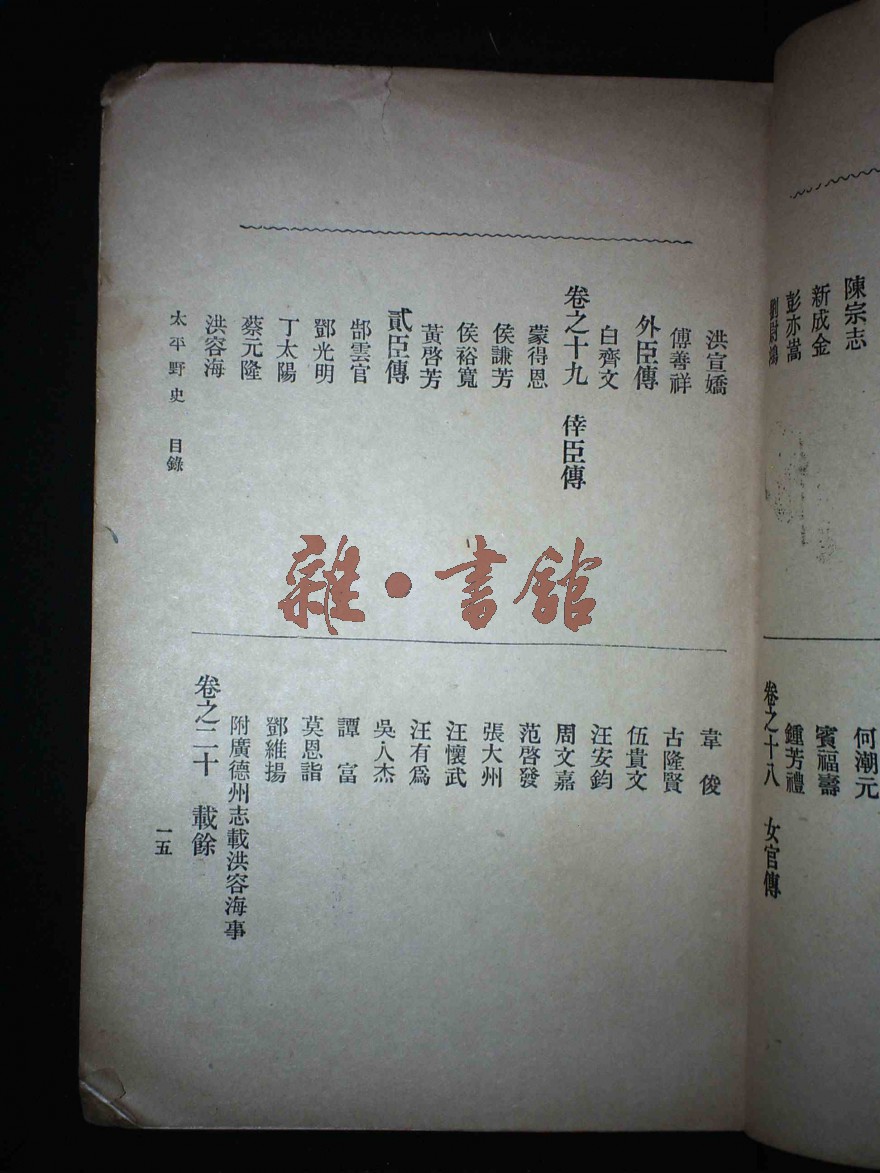 陳宗志
新成金
彭亦嵩
劉尉鴻
何潮元
賓福壽
鍾芳禮
卷之十八 女官傳
洪宣嬌
傅善祥
外臣傳
白齊文
卷之十九 倖臣傳
蒙得恩
侯謙芳
侯裕寬
黃啓芳
貳臣傳
郜雲官
鄧光明
丁太陽
蔡元隆
洪容海
韋俊
古隆賢
伍貴文
汪安鈞
周文嘉
范啓發
張大州
汪懷武
汪有爲
吳人杰
譚富
莫恩詣
鄧維揚
附廣德州志載洪容海事
卷之二十 載餘
太平野史 目錄
一五
雜·書館